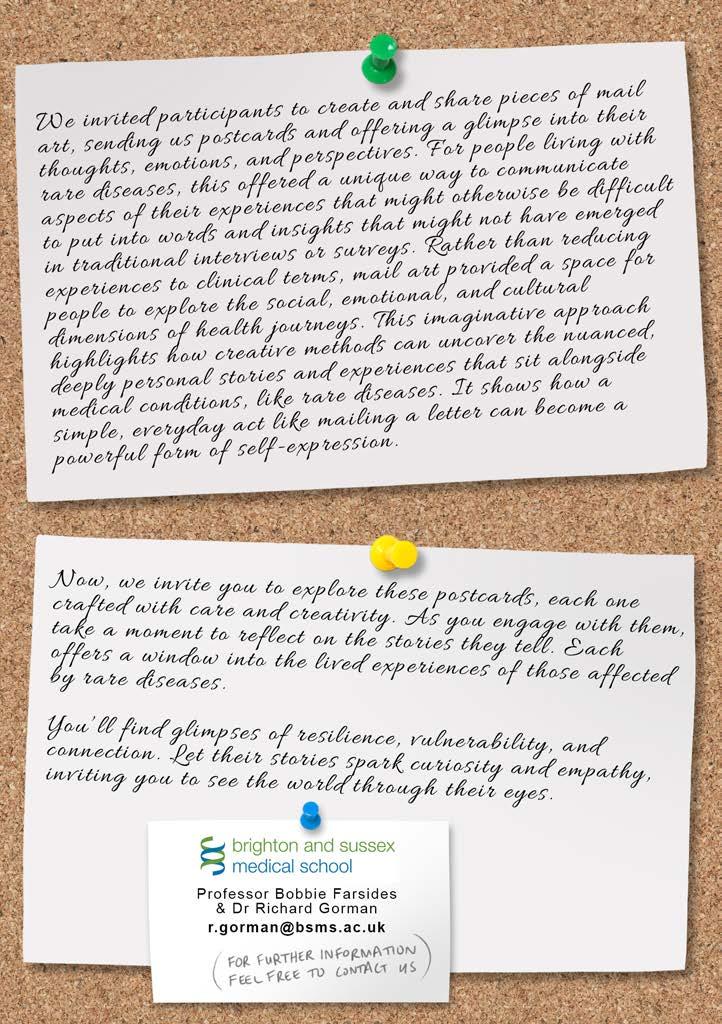 We invited participants to create and share pieces of mail
art, sending us postcards and offering a glimpse into their
thoughts, emotions, and perspectives. For people living with
rare diseases, this offered a unique way to communicate
aspects of their experiences that might otherwise be difficult
to put into words and insights that might not have emerged
in traditional interviews or surveys. Rather than reducing
experiences to clinical terms, mail art provided a space for
people to explore the social, emotional, and cultural
dimensions of health journeys. This imaginative approach
highlights how creative methods can uncover the nuanced,
deeply personal stories and experiences that sit alongside
medical conditions, like rare diseases. It shows how a
simple, everyday act like mailing a letter can become a
powerful form of self-expression.
Now, we invite you to explore these postcards, each one
crafted with care and creativity. As you engage with them,
take a moment to reflect on the stories they tell. Each
offers a window into the lived experiences of those affected
by rare diseases.
You'll find glimpses of resilience, vulnerability, and
connection. Let their stories spark curiosity and empathy,
inviting you to see the world through their eyes.
brighton and sussex
medical school
Professor Bobbie Farsides
& Dr Richard Gorman
r.gorman@bsms.ac.uk
(FOR FURTHER INFORMATION
FEEL FREE TO CONTACT US)